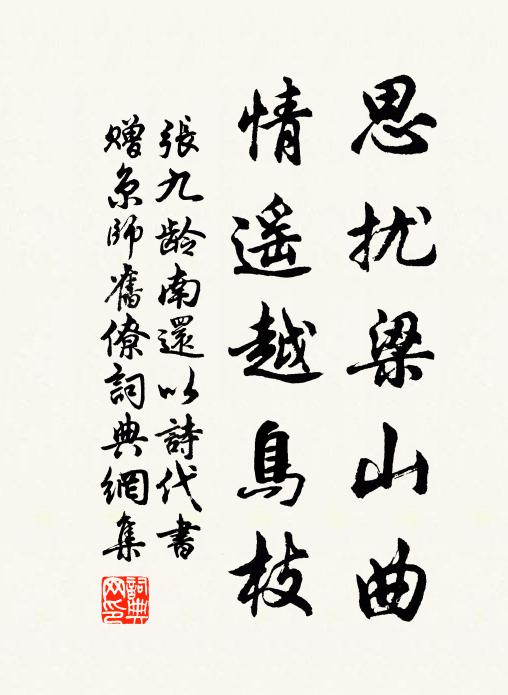 思扰梁山曲
情遥越鳥枝
張九龄南還以詩代書
赠京師舊僚詞典網集
詞典網印